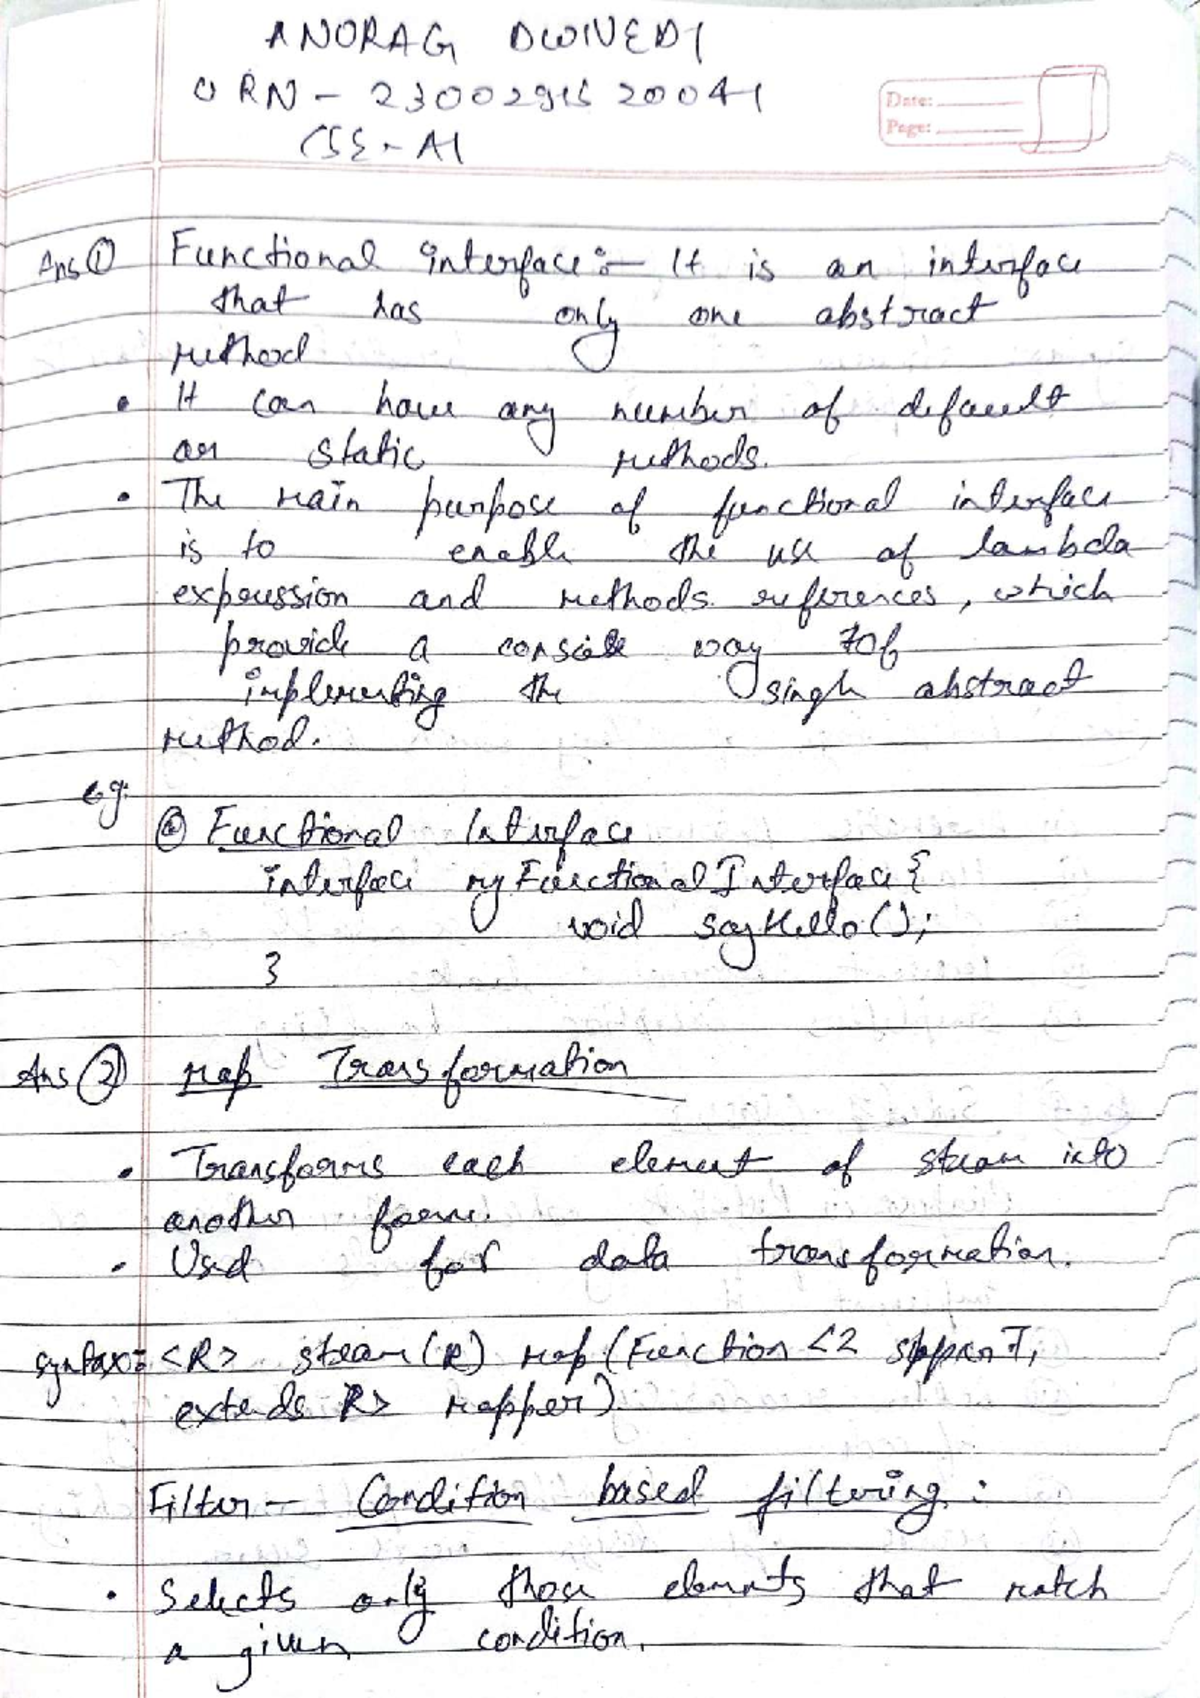 ANURAG DWIVEDI
URN - 2300291520041
CSE - A1
Date:
Page:
Ans ① Functional interface:- It is an interface
that has only one abstract
method
• It can have any number of default
or static methods.
• The main purpose of functional interface
is to enable the use of lambda
expression and methods references, which
provide a concise way for
implementing the single abstract
method.
eg:
@ Functional Interface
interface myFunctionalInterface {
void sayHello();
}
Ans ② Map Transformation
• Transforms each element of stream into
another form.
• Used for data transformation.
Syntax:- <R> stream(R) map(Function <? T,
extends R> mapper)
Filter - Condition based filtering :
• Selects only those elements that match
a given condition.